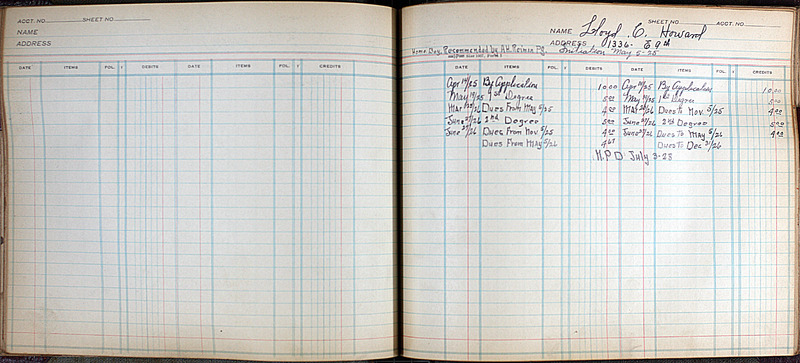 ACCT. NO. SHEET NO.
NAME
ADDRESS
DATE ITEMS FOL. √ DEBITS DATE ITEMS FOL. √ CREDITS
SHEET NO. ACCT. NO.
NAME Lloyd C. Howard
ADDRESS 1336- E 9th
Home Boy, Recommended by A.H. P.G. Initiation May 5-25
DATE ITEMS FOL. √ DEBITS DATE ITEMS FOL. √ CREDITS
Apr 14/25 By Application 10 00 Apr 14/25 By Application 10 00
May 19/25 1st Degree 5 00 May 19/25 1st Degree 5 00
Mar /26 Dues From May 5/25 4 00 Mar /26 Dues To Nov. 5/25 4 00
June /26 2nd Degree 5 00 June /26 2nd Degree 5 00
June /26 Dues From Nov 5/25 4 00 June /26 Dues To May 5/26 4 00
Dues From May 5/26 4 67 Dues To Dec 31/26
N.P.D. July 3-28